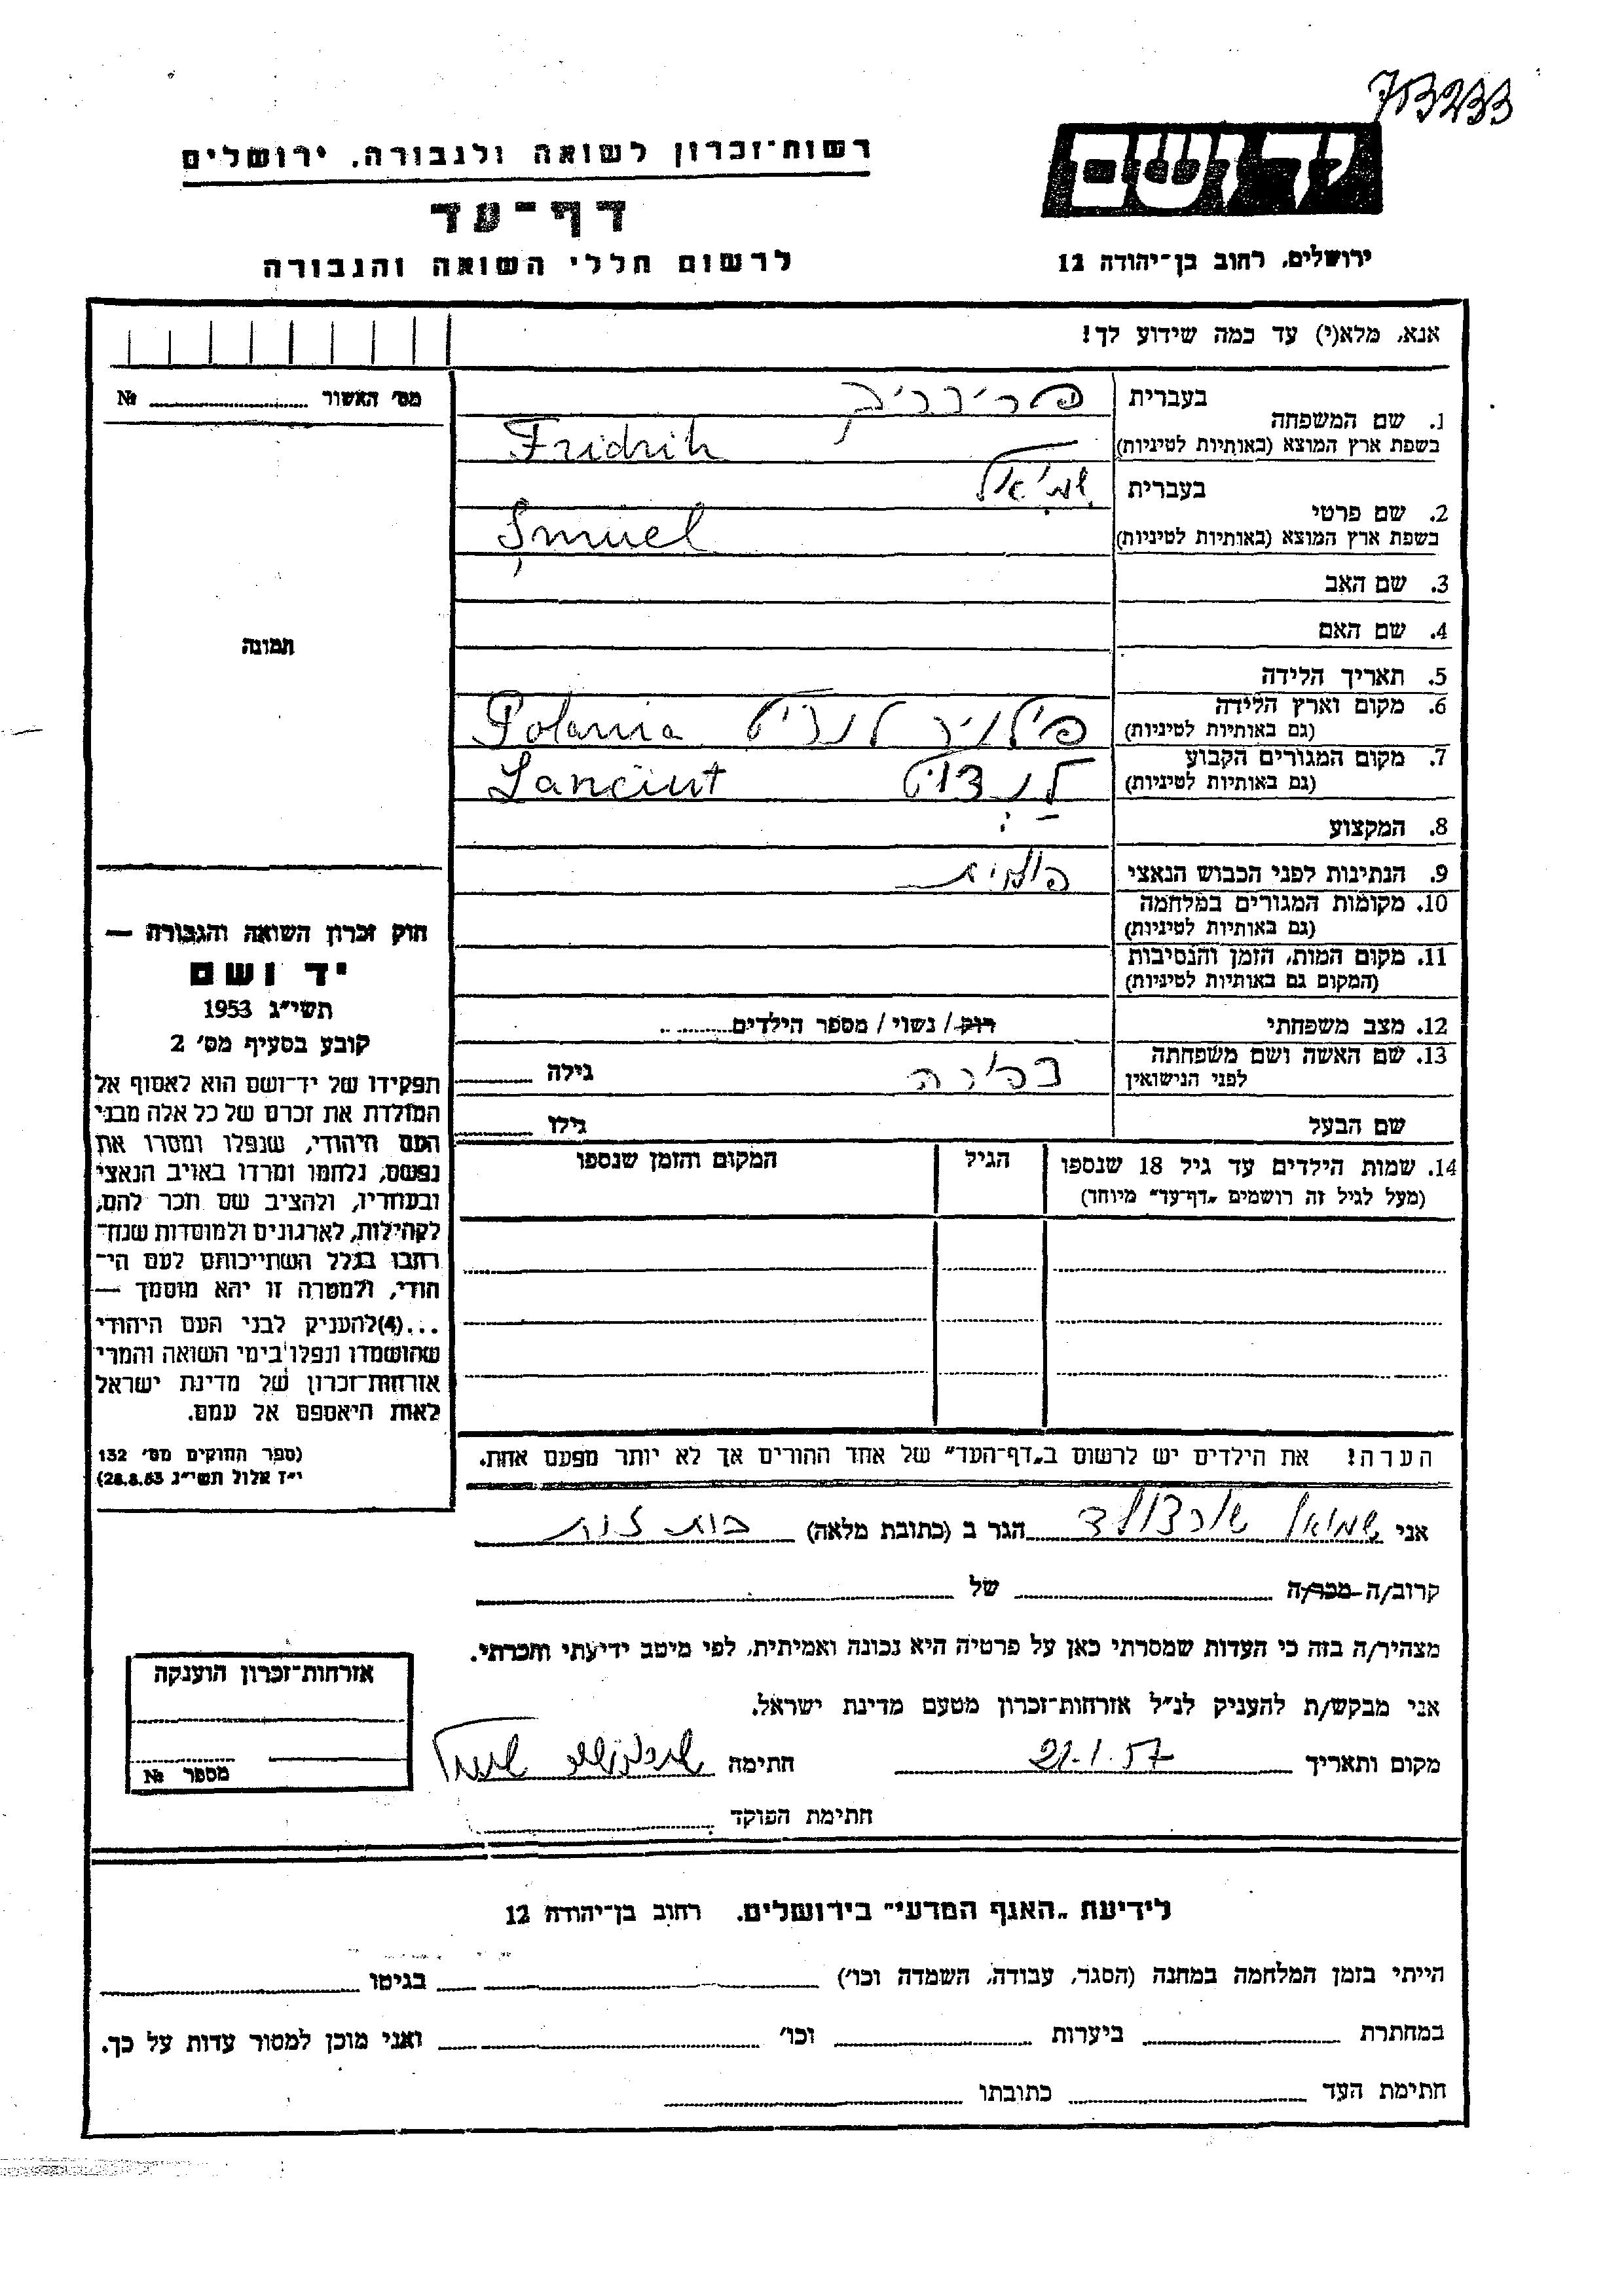 713233
יד ושם
רשות־זכרון לשואה ולגבורה, ירושלים
דף־עד
ירושלים, רחוב בן־יהודה 12
לרשום חללי השואה והגבורה
אנא, מלא(י) עד כמה שידוע לך!
מס׳ האשור №
תמונה
1. שם המשפחה
בעברית פרידריך
בשפת ארץ המוצא (באותיות לטיניות) Fridrih
2. שם פרטי
בעברית
בשפת ארץ המוצא (באותיות לטיניות) Şmuel
3. שם האב
4. שם האם
5. תאריך הלידה
6. מקום וארץ הלידה
(גם באותיות לטיניות) Polania
7. מקום המגורים הקבוע
(גם באותיות לטיניות) Lanciut
8. המקצוע
9. הנתינות לפני הכבוש הנאצי פולנית
10. מקומות המגורים במלחמה
(גם באותיות לטיניות)
11. מקום המות, הזמן והנסיבות
(המקום גם באותיות לטיניות)
12. מצב משפחתי רוק / נשוי / מספר הילדים
13. שם האשה ושם משפחתה
לפני הנישואין גילה
שם הבעל גילו
14. שמות הילדים עד גיל 18 שנספו הגיל המקום והזמן שנספו
(מעל לגיל זה רושמים „דף־עד״ מיוחד)
הערה! את הילדים יש לרשום ב„דף־העד״ של אחד ההורים אך לא יותר מפעם אחת.
חוק זכרון השואה והגבורה —
יד ושם
תשי״ג 1953
קובע בסעיף מס׳ 2
תפקידו של יד־ושם הוא לאסוף אל
המולדת את זכרם של כל אלה מבני
העם היהודי, שנפלו ומסרו את
נפשם, נלחמו ומרדו באויב הנאצי
ובעוזריו, ולהציב שם וזכר להם,
לקהילות, לארגונים ולמוסדות שנח־
רבו בגלל השתייכותם לעם הי־
הודי, ולמטרה זו יהא מוסמך —
...(4)להעניק לבני העם היהודי
שהושמדו ונפלו בימי השואה והמרי
אזרחות־זכרון של מדינת ישראל
לאות היאספם אל עמם.
(ספר החוקים מס׳ 132
י״ז אלול תשי״ג 28.8.53)
אני שמואל הגר ב (כתובת מלאה)
קרוב/ה מכר/ה של
מצהיר/ה בזה כי העדות שמסרתי כאן על פרטיה היא נכונה ואמיתית, לפי מיטב ידיעתי והכרתי.
אני מבקש/ת להעניק לנ״ל אזרחות־זכרון מטעם מדינת ישראל.
מקום ותאריך 21.1.57 חתימה
חתימת הפוקד
אזרחות־זכרון הוענקה
מספר №
לידיעת „האגף המדעי״ בירושלים, רחוב בן־יהודה 12
הייתי בזמן המלחמה במחנה (הסגר, עבודה, השמדה וכו׳) בגיטו
במחתרת ביערות וכו׳ ואני מוכן למסור עדות על כך.
חתימת העד כתובתו